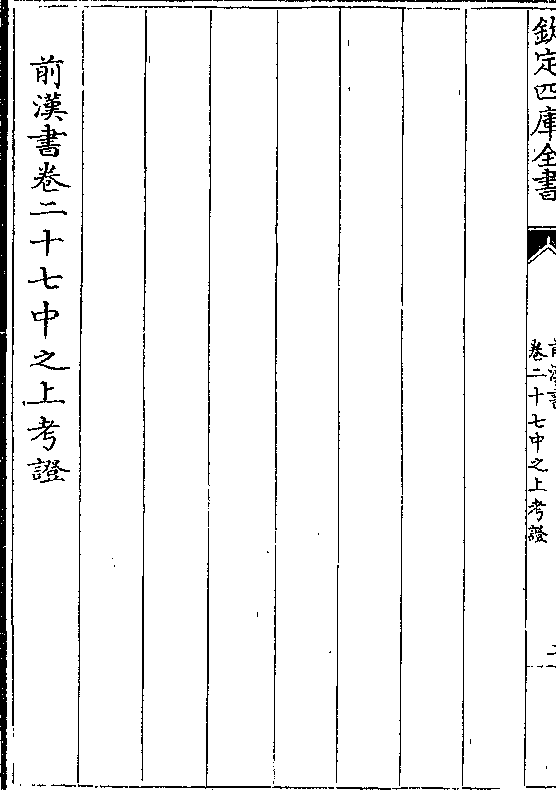 欽定四庫全書
前漢書
卷二十七中之上考證
前漢書卷二十七中之上考證